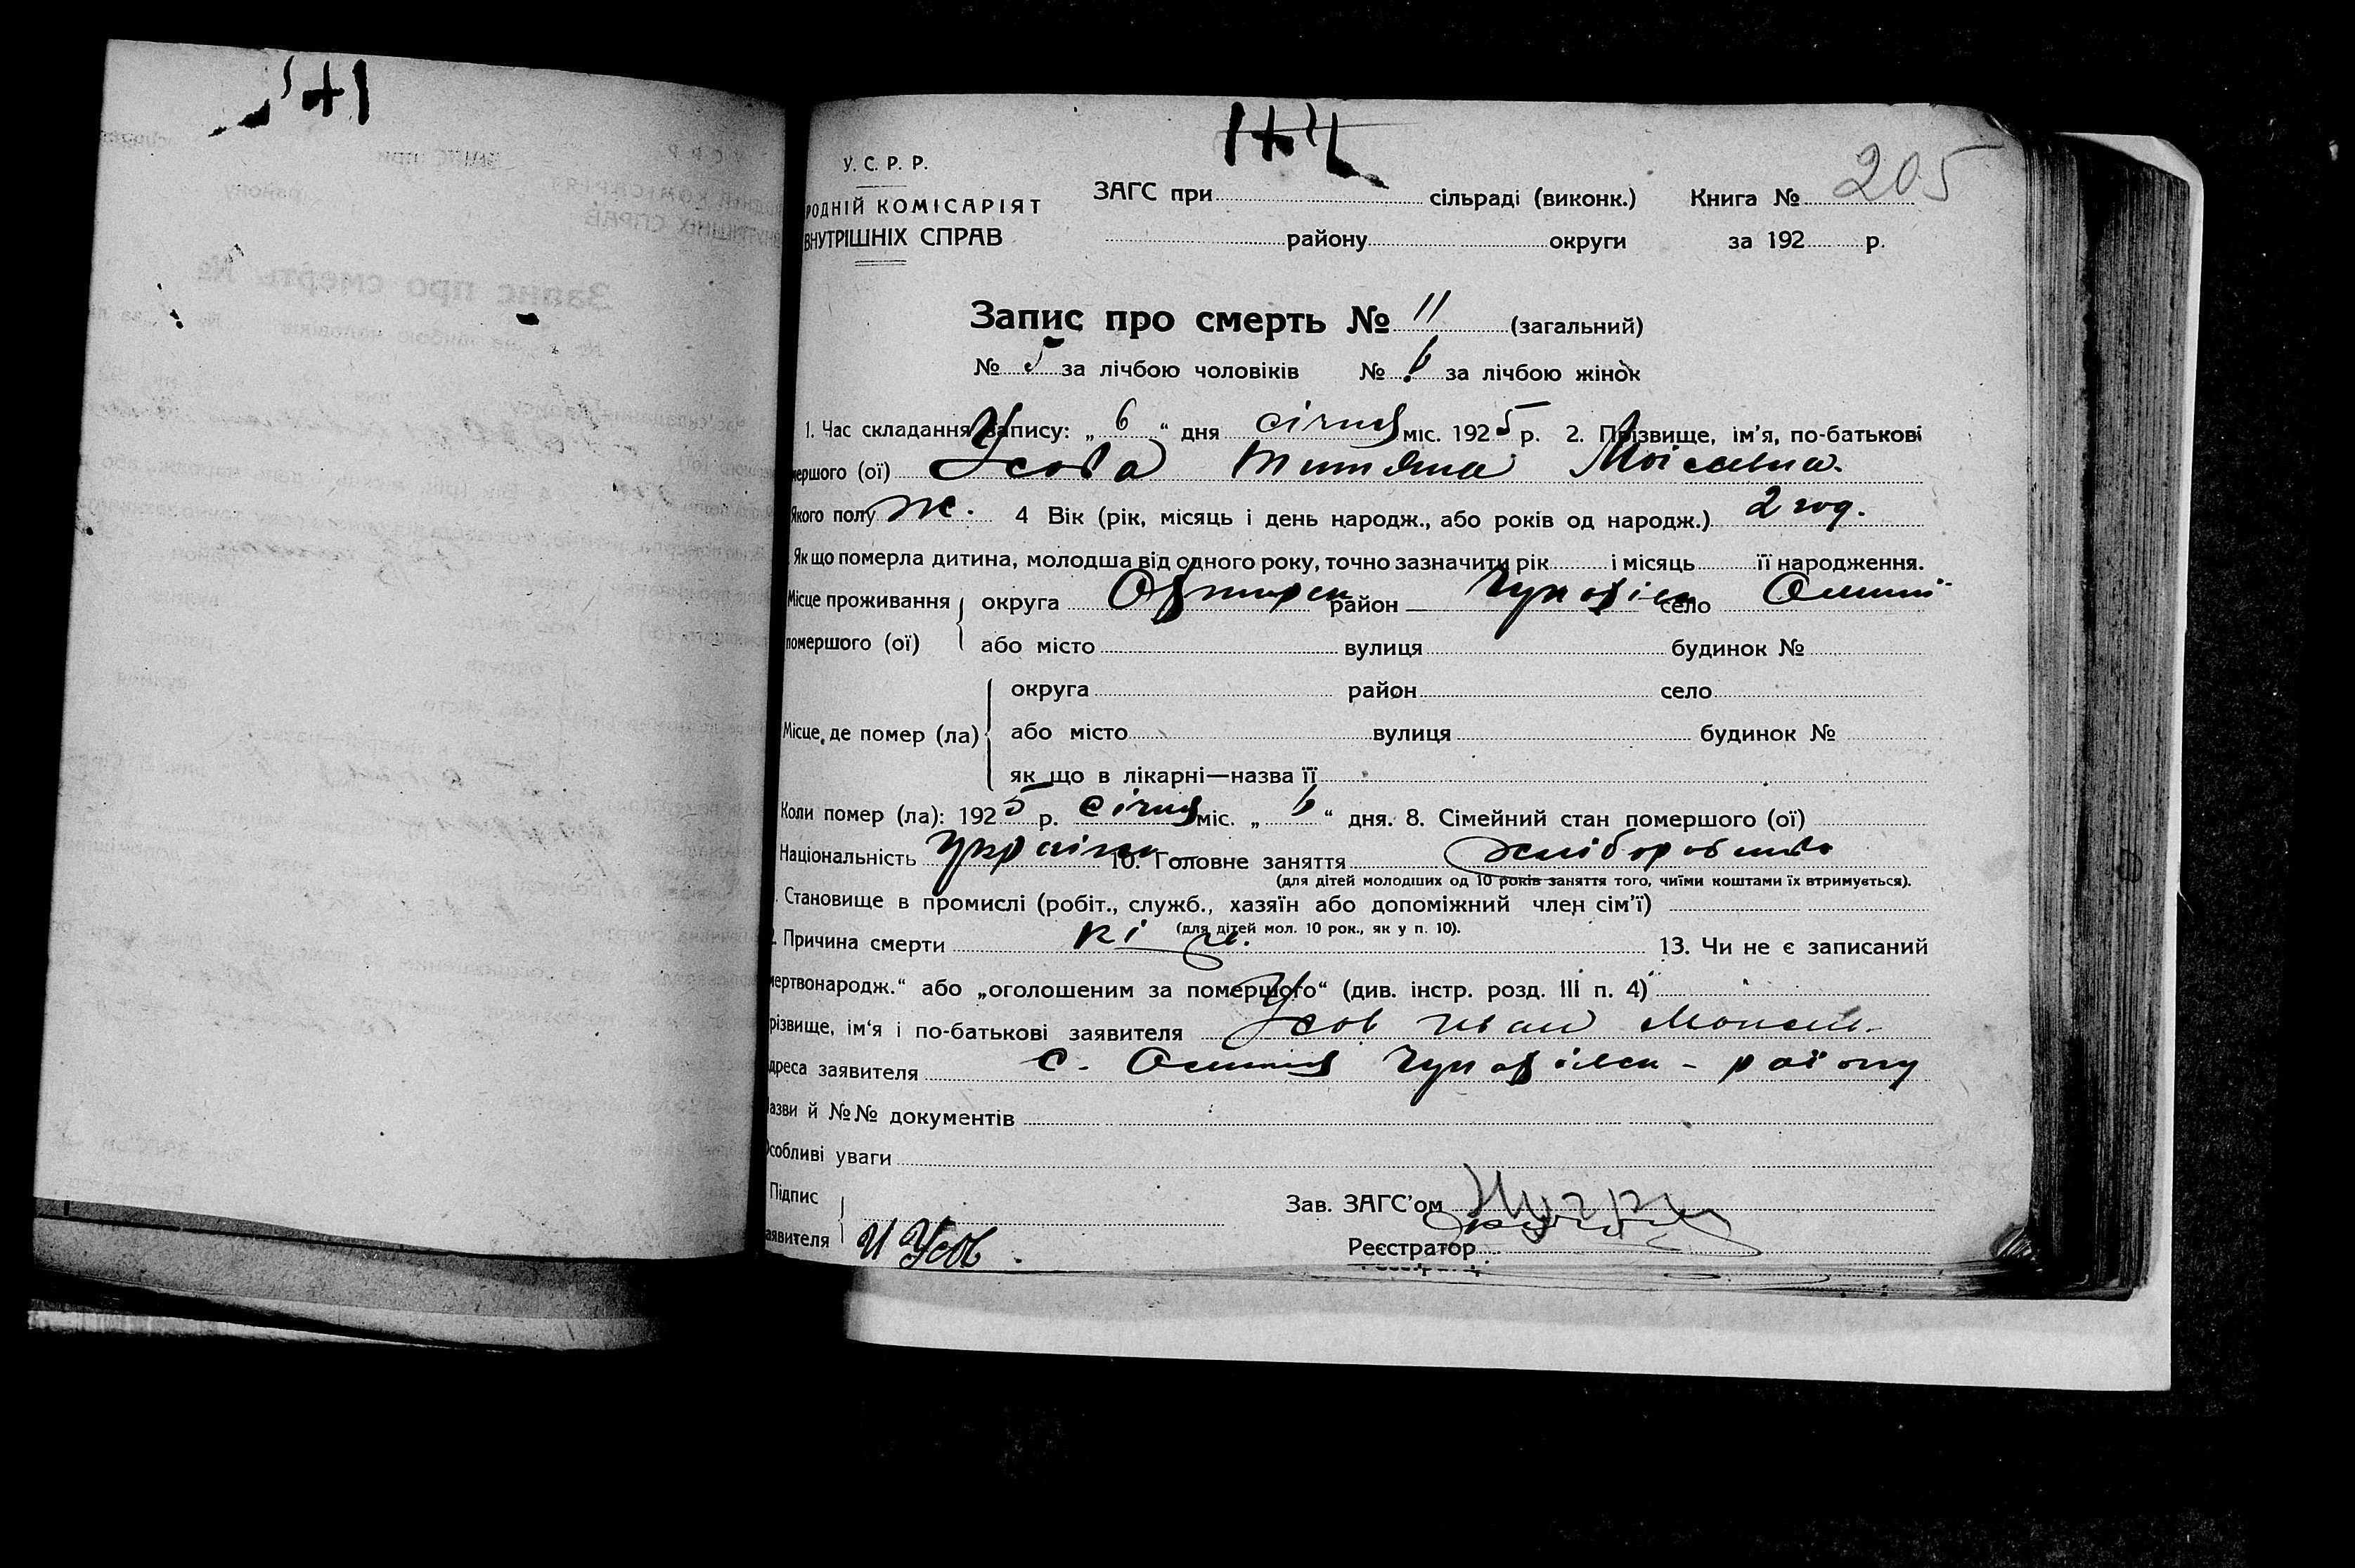 141
144
205
У. С. Р. Р.
РОДНІЙ КОМІСАРІЯТ
ВНУТРІШНІХ СПРАВ
ЗАГС при сільраді (виконк.) Книга №
району округи за 192 р.
Запис про смерть № 11 (загальний)
№ 5 за лічбою чоловіків № 6 за лічбою жінок
1. Час складання запису: „ 6 “ дня січня міс. 1925 р. 2. Прізвище, ім’я, по-батькові
мершого (ої) Усова Титяна Моісеевна.
Якого полу ж. 4 Вік (рік, місяць і день народж., або років од народж.) 2 год.
Як що померла дитина, молодша від одного року, точно зазначити рік і місяць її народження.
Місце проживання округа район село
померлого (ої) або місто вулиця будинок №
округа район село
Місце, де помер (ла) або місто вулиця будинок №
як що в лікарні—назва її
Коли помер (ла): 1925 р. січня міс. „ 6 “ дня. 8. Сімейний стан померлого (ої)
Національність україн 10. Головне заняття хліборобство
(для дітей молодших од 10 років заняття того, чиїми коштами їх втримується).
Становище в промислі (робіт., служб., хазяїн або допоміжний член сім’ї)
(для дітей мол. 10 рок., як у п. 10).
Причина смерти кір 13. Чи не є записаний
мертвонародж.“ або „оголошеним за помершого“ (див. інстр. розд. III п. 4)
різвище, ім’я і по-батькові заявителя Усов Иван
дреса заявителя с. району
азви й №№ документів
Особливі уваги
Підпис Зав. ЗАГС’ом
аявителя И Усов. Реєстратор